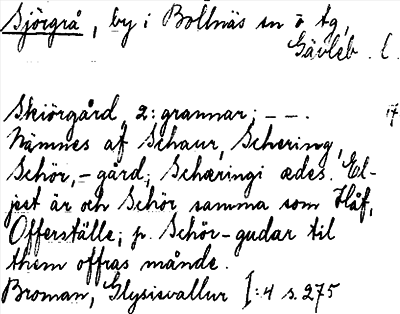 Sjörgrå, by i Bollnäs sn o tg,
Gävleb. l.
Skiörgård, 2: grannar; - - .
Nämnes af Schaur, Schering,
Schör, - gård; Schæringi ædes. El-
jest är och Schör samma som Håf,
Offerställe; p. Schör-gudar til
them offras månde.
Broman, Glysisvallur I:4 s. 275